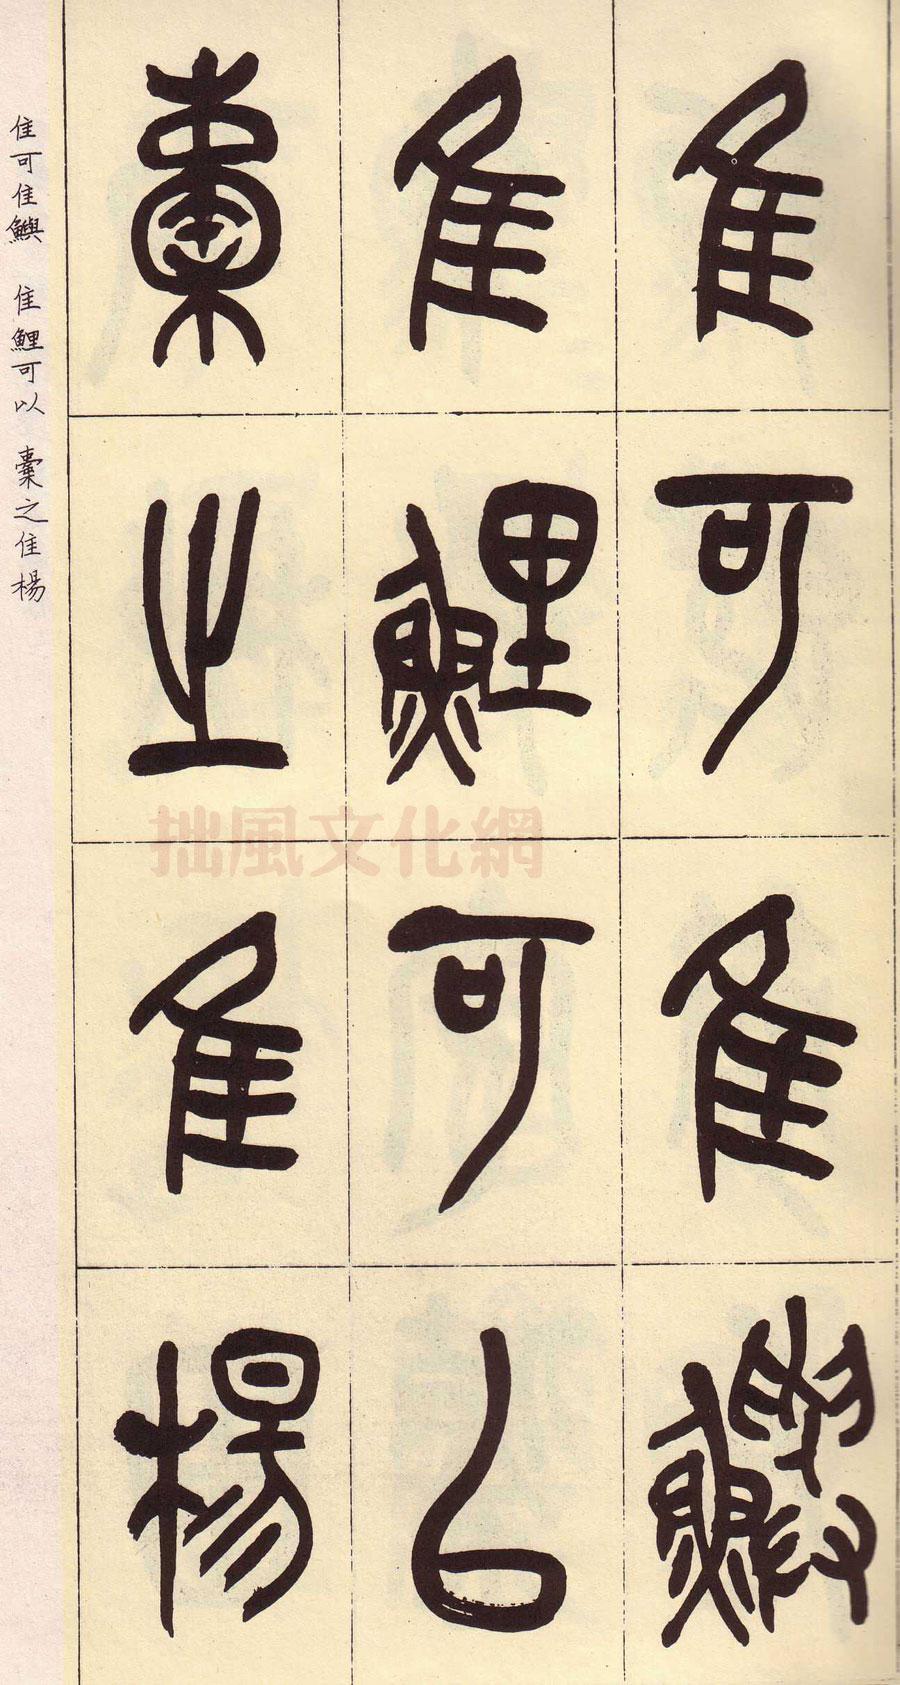 隹可隹鱮
隹鯉可㠯
橐之隹楊
隹可隹鱮　隹鯉可以　橐之隹楊
拙風文化網